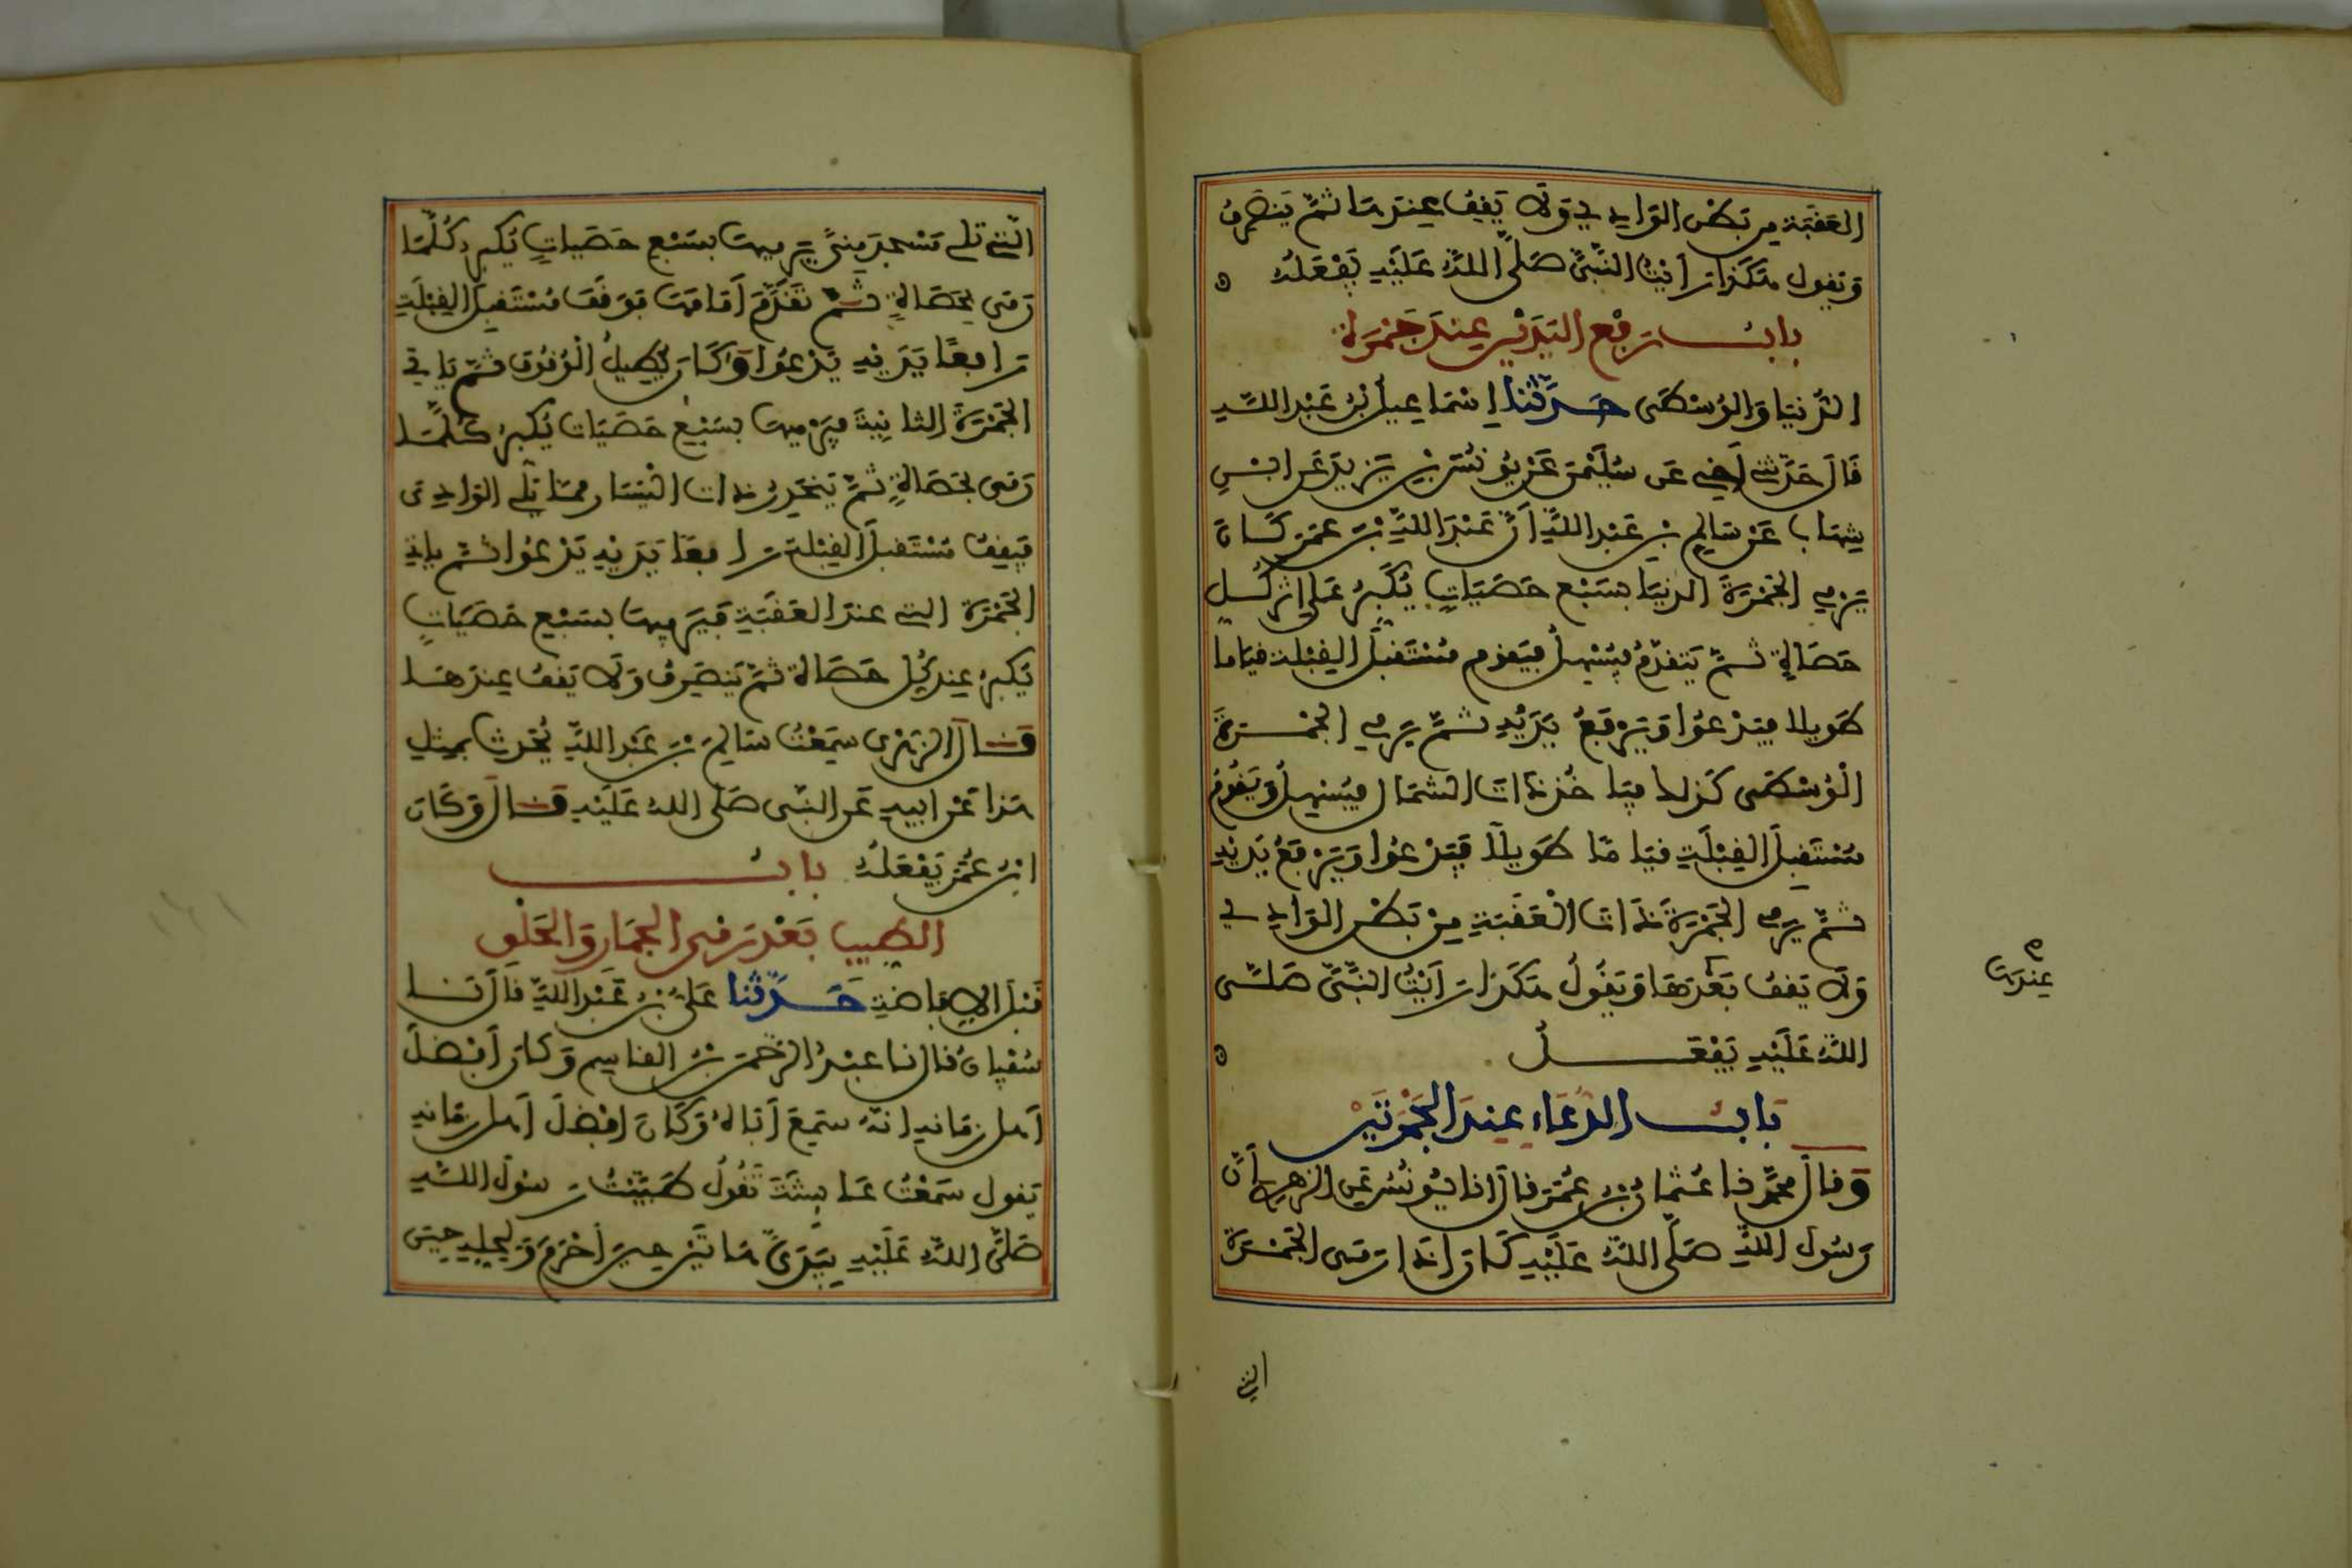 العَقَبَةِ مِن بَطْنِ الوَادِي وَلَا يَقِفُ عِندَهَا ثُمَّ يَنصَرِفُ
وَيَقُول هَكَذَا رَأَيْتُ النَّبِيَّ صَلَّى اللَّهُ عَلَيْهِ يَفْعَلُهُ ه
بابُ رَفْعِ اليَدَيْنِ عِندَ جَمْرَةِ
الدُّنيَا وَالوُسْطَى حَدَّثَنَا إِسْمَاعِيلُ بْنُ عَبْدِ اللَّهِ
قَالَ حَدَّثَنِي أَخِي عَن سُلَيْمَنَ عَنْ يُونُسَ بْنِ يَزِيدَ عَنِ ابْنِ
شِهَابٍ عَنْ سَالِمِ بْنِ عَبْدِ اللَّهِ أَنَّ عَبْدَ اللَّهِ بْنَ عُمَرَ كَانَ
يَرْمِي الجَمْرَةَ الدنيَا بِسَبْعِ حَصَيَاتٍ يُكَبِّرُ عَلَى إِثْرِ كُلِّ
حَصَاةٍ ثُمَّ يَتَقَدَّمُ فَيُسْهِلُ فَيَقوم مُسْتَقْبِلَ القِبْلَةِ قِيَاما
طَوِيلا فَيَدْعُوا وَيَرْفَعُ يَدَيْهِ ثُمَّ يَرْمِي الجَمْرَةَ
الْوُسْطَى كَذلك فَيَا خُذ ذَاتَ الشمَالِ فَيُسْهِلُ وَيَقُومُ
مُسْتَقْبِلَ القِبْلَةِ قِيَامًا طَوِيلًا فَيَدْعُوا وَيَرْفَعُ يَدَيْهِ
ثُمَّ يَرْمِي الجَمْرَةَ ذَاتَ الْعَقَبَةِ مِنْ بَطْنِ الوَادِي
وَلَا يَقِفُ بَعْدَهَا وَيَقُولُ هَكَذَا رَأَيْتُ النَّبِيَّ صَلَّى
اللَّهُ عَلَيْهِ يَفْعَلُ ه
عِندَهَا
بَابُ الدُّعَاءِ عِندَ الجَمْرَتَيْنِ
وَقَالَ مُحَمَّد نا عُثمَانُ بْنُ عُمَرَ قَالَ انا يُونُسُ عَنِ الزهرِي أَنَّ
رَسُولَ اللَّهِ صَلَّى اللَّهُ عَلَيْهِ كَانَ إذَا رَمَى الجَمْرَةَ
التي
الَّتِي تَلِي مَسْجِدَ مِنًى يَرْمِيهَا بِسَبْعِ حَصَيَاتٍ يُكَبِّرُ كُلَّمَا
رَمَى بِحَصَاةٍ ثُمَّ تَقَدَّمَ أَمَامَهَا فَوَقَفَ مُسْتَقْبِلَ القِبْلَةِ
رَافِعًا يَدَيْهِ يَدْعُوا وَكَانَ يُطِيلُ الْوُقُوفَ ثُمَّ يَاتِي
الجَمْرَةَ الثانِيَةَ فَيَرْمِيهَا بِسَبْعِ حَصَيَاتٍ يُكَبِّرُ كُلَّمَا
رَمَى بِحَصَاةٍ ثُمَّ يَنحَدِرُ ذَاتَ الْيَسَارِ مِمَّا يَلِي الوَادِيَ
فَيَقِفُ مُسْتَقبِلَ القِبْلَةِ رَافِعًا يَدَيْهِ يَدْعُوا ثُمَّ يَاتِي
الجَمْرَةَ التي عندَ العَقَبَةِ فَيَرْمِيهَا بِسَبْعِ حَصَيَاتٍ
يُكَبِّرُ عِندَ كُلِّ حَصَاةٍ ثُمَّ يَنصَرِفُ وَلَا يَقِفُ عِندَهَا
قَالَ الزهْرِي سَمِعْتُ سَالِمَ بْنَ عَبْدِ اللَّهِ يُحَدِّثُ بِمِثلِ
هَذَا عَنْ أَبِيهِ عَنِ النبي صَلى اللهُ عَلَيْهِ قَالَ وَكَانَ
ابْنُ عُمَرَ يَفْعَلُهُ بابُ
الطِّيبِ بَعْدَ رَمْيِ الجِمَارِ وَالحَلْقِ
قَبْلَ الإِفَاضَةِ حَدَّثَنَا عَلِيُّ بْنُ عَبْدِ اللَّهِ قَالَ نا
سُفْيَانُ قَالَ نا عَبْدُ الرَّحْمَنِ بْنُ القَاسِمِ وَكَانَ أَفْضَلَ
أَهلِ زَمَانِهِ انَّهُ سَمِعَ أَبَاهُ وَكَانَ أَفْضَلَ أَهلِ زَمَانِهِ
يَقول سَمِعْتُ عَايِشَةَ تَقُولُ طَيَّبْتُ رَسُولَ اللَّهِ
صَلَّى اللَّهُ عَلَيْهِ بِيَدَيَّ هَاتَيْنِ حِينَ أَحْرَمَ وَلِحِلِّهِ حِينَ